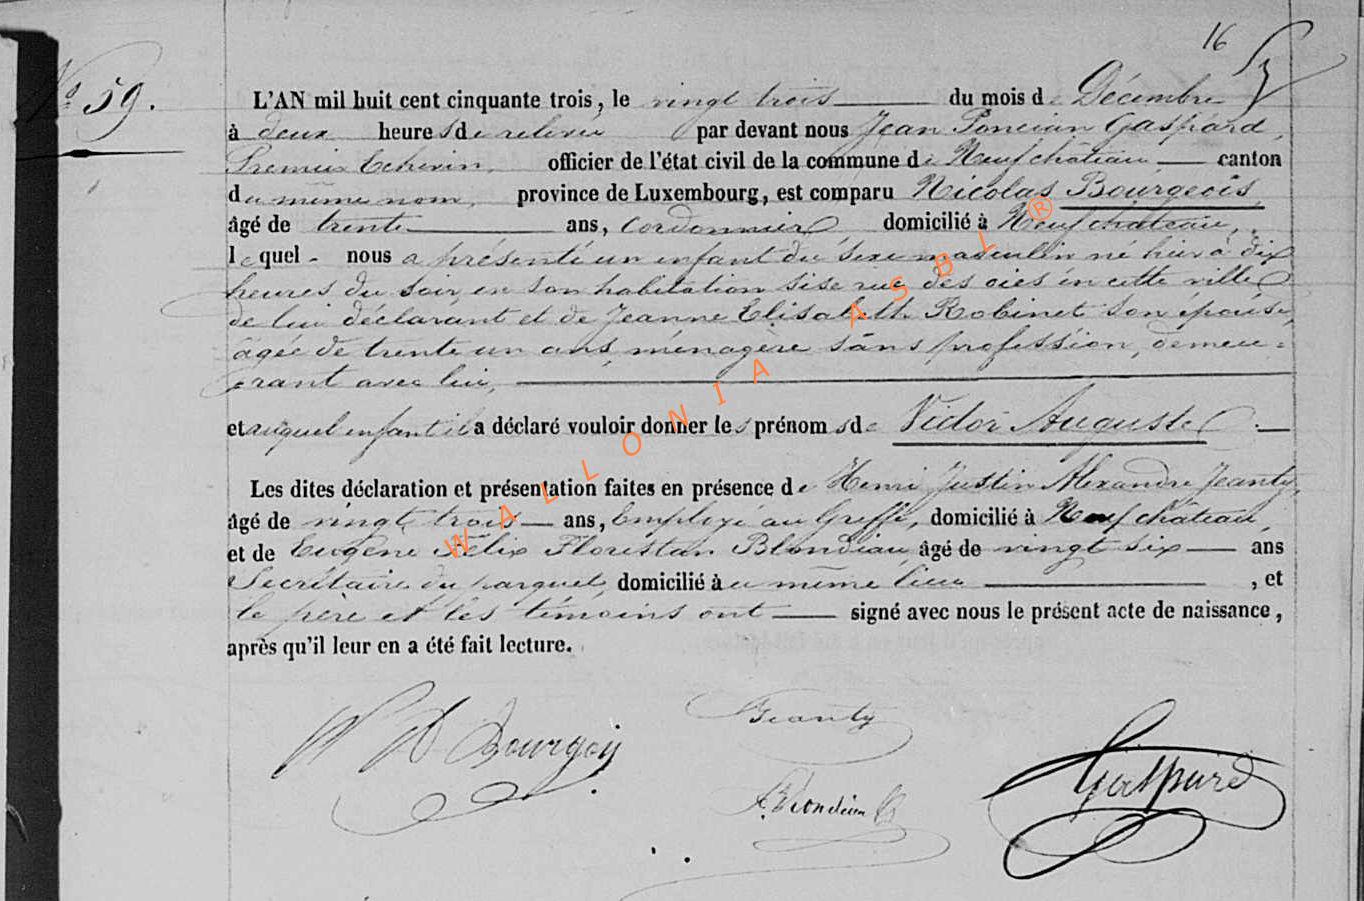 16
N° 59.
L'AN mil huit cent cinquante trois, le vingt trois du mois de Décembre
à deux heures de relevée par devant nous Jean Poncian Gaspard,
Premier Echevin, officier de l'état civil de la commune de Neufchâteau canton
du même nom, province de Luxembourg, est comparu Nicolas Bourgeois,
âgé de trente ans, Cordonnier, domicilié à Neufchateau,
lequel nous a présenté un enfant du sexe masculin né hier à dix
heures du soir, en son habitation sise rue des oies en cette ville
de lui déclarant et de Jeanne Elisabeth Robinet son épouse,
âgée de trente un ans, ménagère sans profession, demeu=
rant avec lui,
et auquel enfant il a déclaré vouloir donner les prénoms de Victor Auguste.
Les dites déclaration et présentation faites en présence de Henri Justin Alexandre Jeanty,
âgé de vingt trois ans, Employé au Greffe, domicilié à Neufchâteau,
et de Eugène Félix Florestan Blondiau, âgé de vingt six ans
Secrétaire du parquet, domicilié au même lieu, et
le père et les témoins ont signé avec nous le présent acte de naissance,
après qu'il leur en a été fait lecture.
Bourgois
Jeanty
Blondiau
Gaspard
WALLONIA ASBL ®